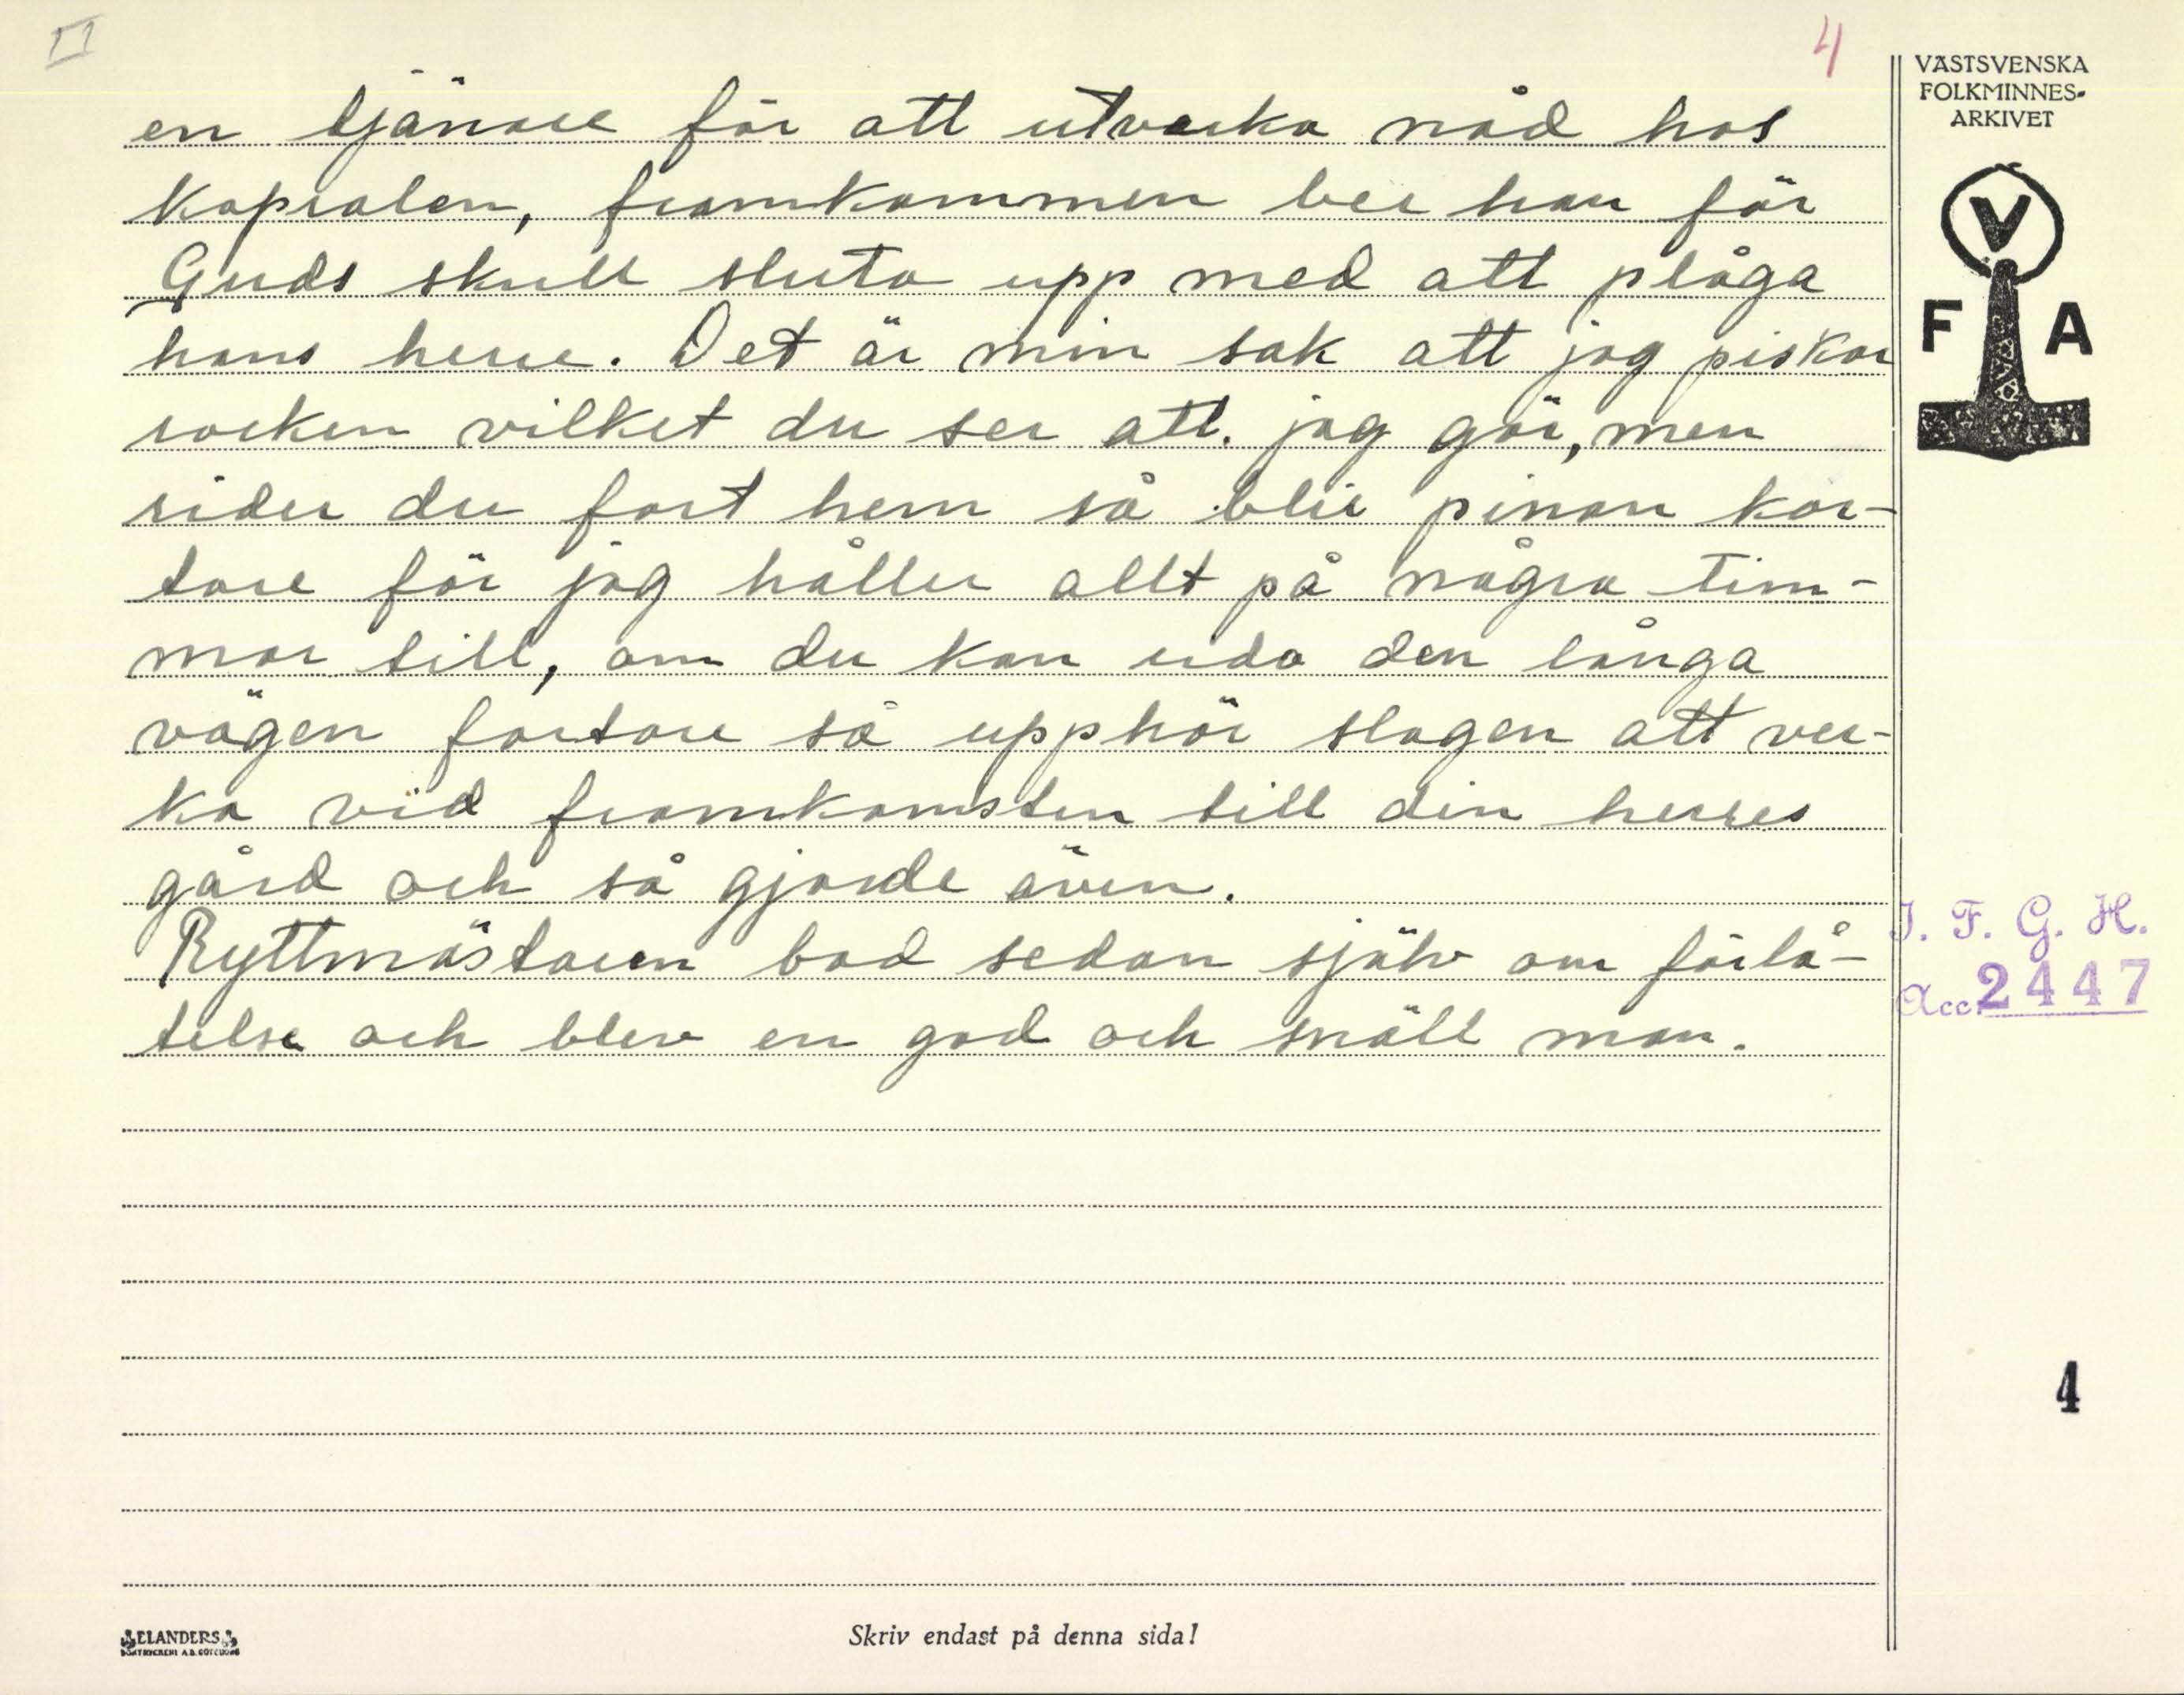 4
VÄSTSVENSKA
FOLKMINNES-
ARKIVET
V
F A
en tjänare för att utverka nåd hos
kopralen, framkommen ber han för
Guds skull sluta upp med att plåga
hans herre. Det är min sak att jag piskar
rocken vilket du ser att jag gör, men
rider du fort hem så blir pinan kor-
tare för jag håller allt på några tim-
mar till, om du kan rida den långa
vägen fortare så upphör slagen att ver-
ka vid framkomsten till din herres
gård och så gjorde även.
Ryttmästaren bad sedan själv om förlå-
telse och blev en god och snäll man.
I. F. G. H.
Acc. 2447
4
ELANDERS
BOKTRYCKERI A.B. GÖTEBORG
Skriv endast på denna sida!